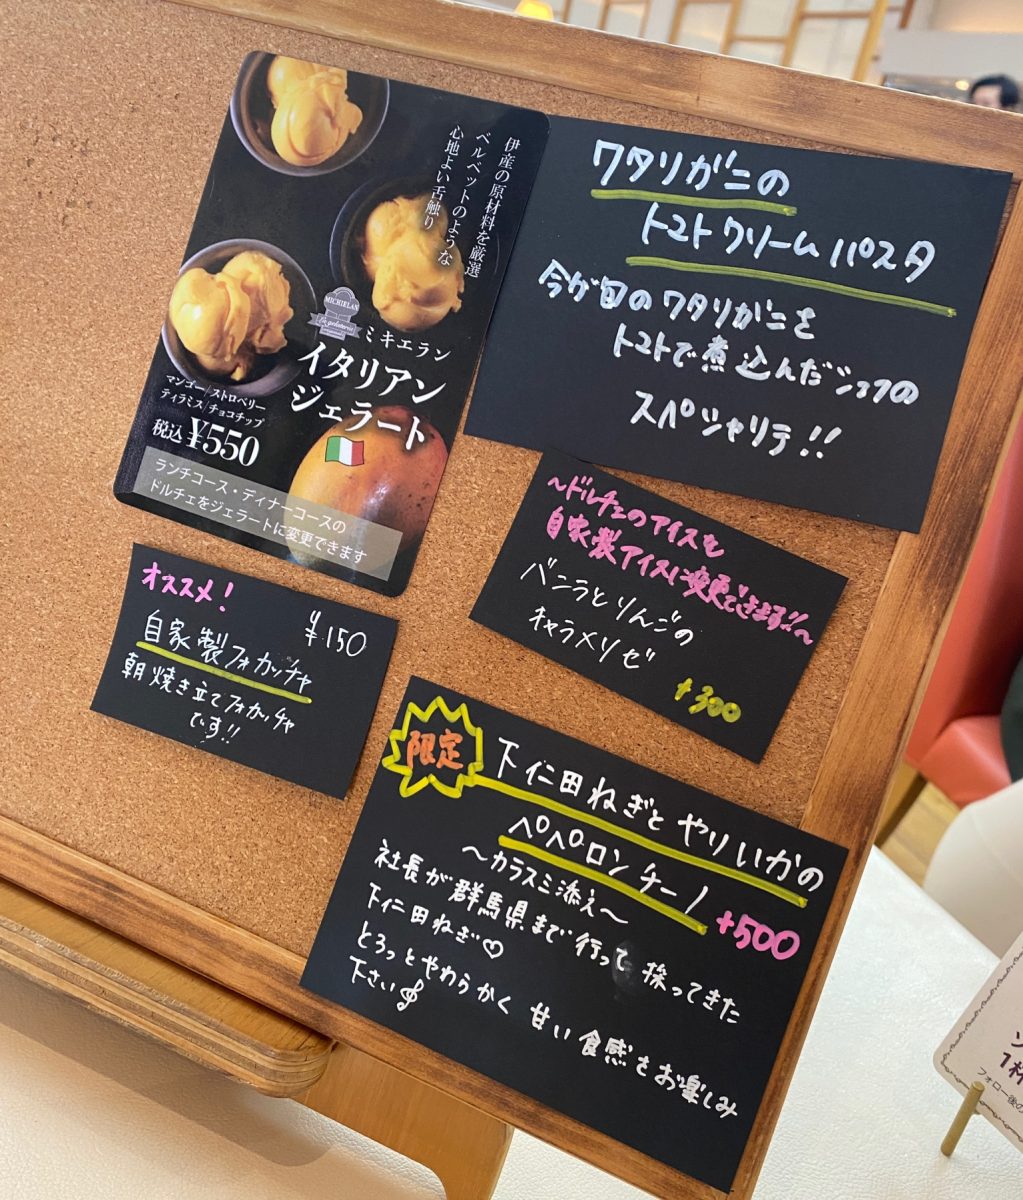 伊産の原材料を厳選
ベルベットのような
心地よい舌触り
MICHIELAN
ミキエラン
イタリアン
ジェラート
マンゴー/ストロベリー
ティラミス/チョコチップ
税込 ¥550
ランチコース・ディナーコースの
ドルチェをジェラートに変更できます
ワタリガニの
トマトクリームパスタ
今が旬のワタリガニを
トマトで煮込んだシェフの
スペシャリテ!!
〜ドルチェのアイスを
自家製アイスに変更できます!!〜
バニラとりんごの
キャラメリゼ
+300
オススメ!
¥150
自家製フォカッチャ
朝焼き立てフォカッチャ
です!!
限定
下仁田ねぎとやりいかの
ペペロンチーノ
〜カラスミ添え〜
+500
社長が群馬県まで行って採ってきた
下仁田ねぎ♡
とろっとやわらかく甘い食感をお楽しみ
下さい
1杯
フォロー後の